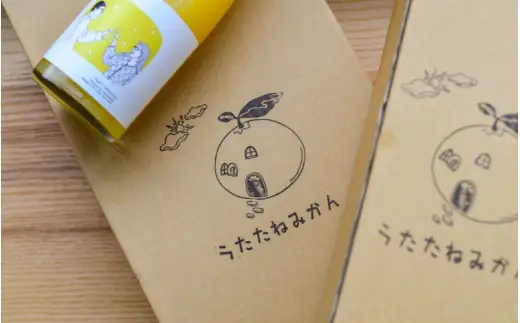 うたたねみかん
うたたねみかん